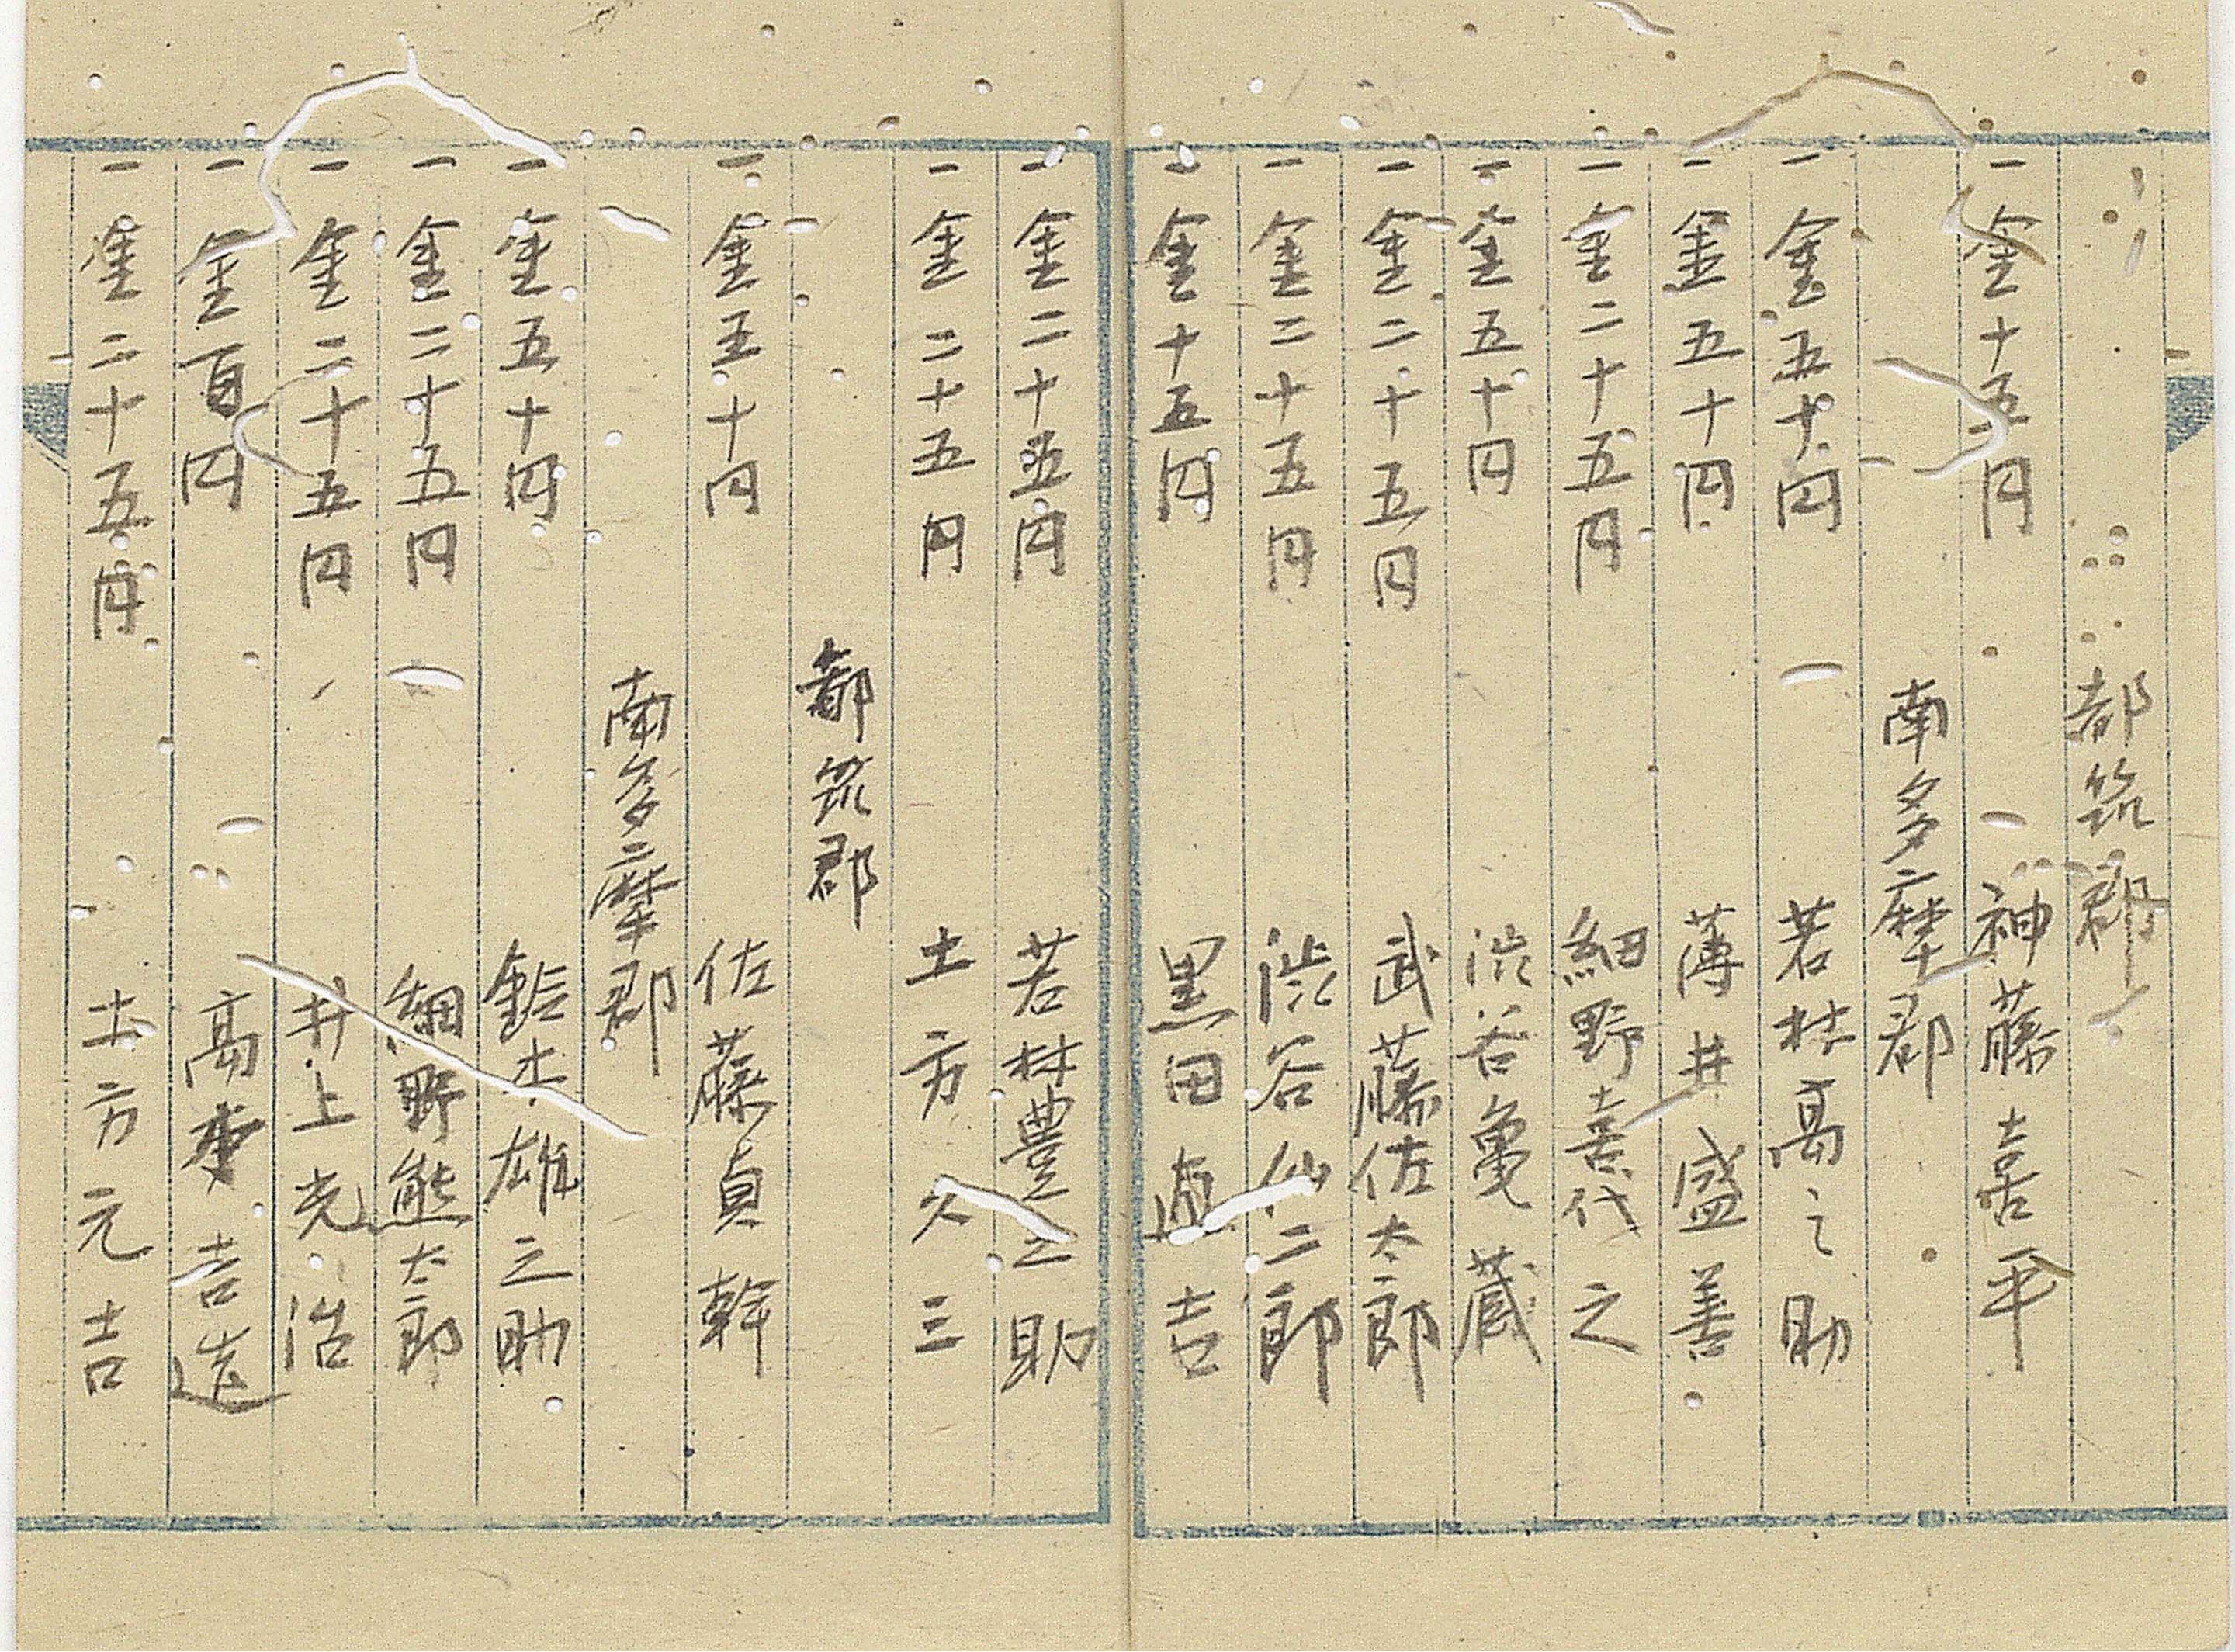 都筑郡
一金十五円 神藤喜平
南多摩郡
一金五十円 若林高之助
一金五十円 薄井盛善
一金二十五円 細野喜代之
一金五十円 渋谷亀蔵
一金二十五円 武藤佐太郎
一金二十五円 渋谷仙二郎
一金十五円 黒田直吉
一金二十五円 若林豊之助
一金二十五円 土方久三
都筑郡
一金五十円 佐藤貞幹
南多摩郡
一金五十円 鈴木雄之助
一金二十五円 細野熊太郎
一金二十五円 井上光治
一金百円 高木吉造
一金二十五円 土方元吉